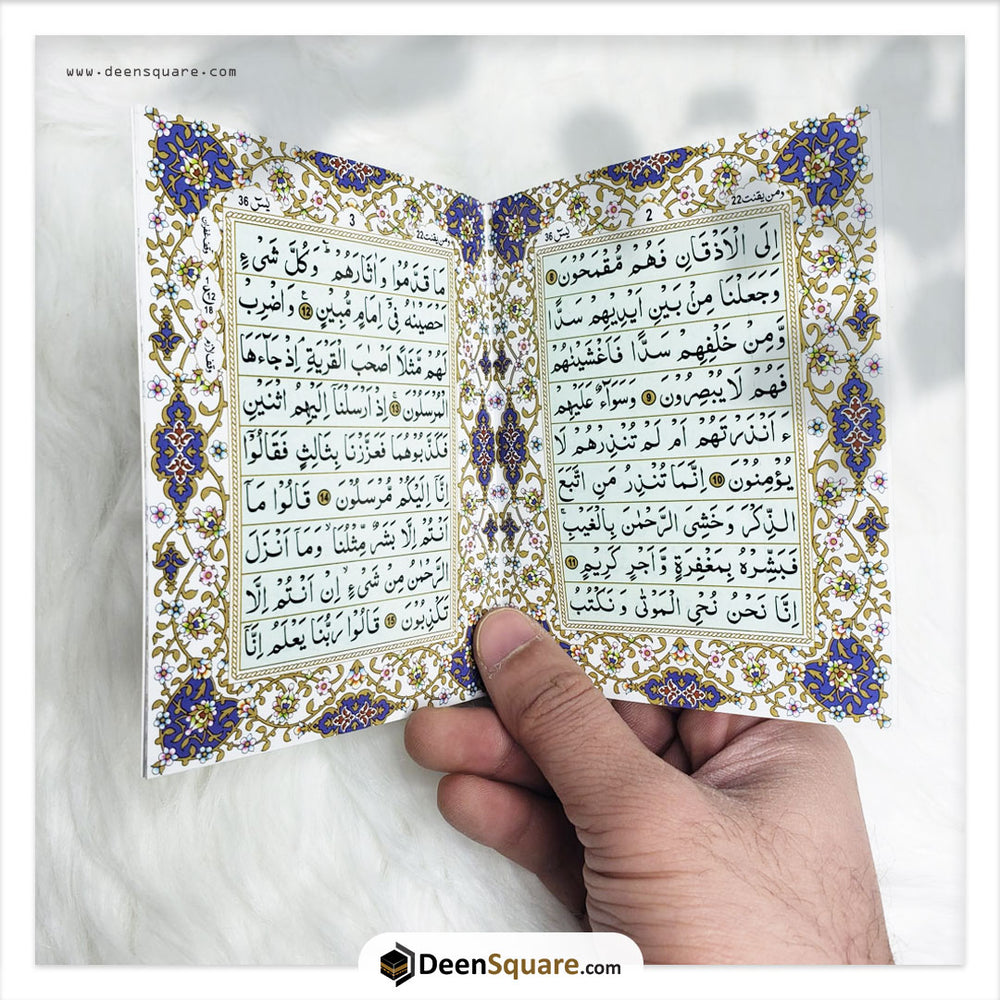 www.deensquare.com
ومن یقنت 22
2
یٰسٓ 36
اِلَی الْاَذْقَانِ فَهُمْ مُّقْمَحُوْنَ 8
وَجَعَلْنَا مِنْۢ بَیْنِ اَیْدِیْهِمْ سَدًّا
وَّمِنْ خَلْفِهِمْ سَدًّا فَاَغْشَیْنٰهُمْ
فَهُمْ لَا یُبْصِرُوْنَ 9 وَسَوَآءٌ عَلَیْهِمْ
ءَاَنْذَرْتَهُمْ اَمْ لَمْ تُنْذِرْهُمْ لَا
یُؤْمِنُوْنَ 10 اِنَّمَا تُنْذِرُ مَنِ اتَّبَعَ
الذِّكْرَ وَخَشِیَ الرَّحْمٰنَ بِالْغَیْبِ ۚ
فَبَشِّرْهُ بِمَغْفِرَةٍ وَّاَجْرٍ كَرِیْمٍ 11
اِنَّا نَحْنُ نُحْیِ الْمَوْتٰی وَنَكْتُبُ
ومن یقنت 22
3
یٰسٓ 36
مَا قَدَّمُوْا وَاٰثَارَهُمْ ؕ وَكُلَّ شَیْءٍ
اَحْصَیْنٰهُ فِیْۤ اِمَامٍ مُّبِیْنٍ 12 وَاضْرِبْ
لَهُمْ مَّثَلًا اَصْحٰبَ الْقَرْیَةِ ۘ اِذْ جَآءَهَا
الْمُرْسَلُوْنَ 13 اِذْ اَرْسَلْنَاۤ اِلَیْهِمُ اثْنَیْنِ
فَكَذَّبُوْهُمَا فَعَزَّزْنَا بِثَالِثٍ فَقَالُوْۤا
اِنَّاۤ اِلَیْكُمْ مُّرْسَلُوْنَ 14 قَالُوْا مَاۤ
اَنْتُمْ اِلَّا بَشَرٌ مِّثْلُنَا ۙ وَمَاۤ اَنْزَلَ
الرَّحْمٰنُ مِنْ شَیْءٍ ۙ اِنْ اَنْتُمْ اِلَّا
تَكْذِبُوْنَ 15 قَالُوْا رَبُّنَا یَعْلَمُ اِنَّاۤ
12
18
DeenSquare.com